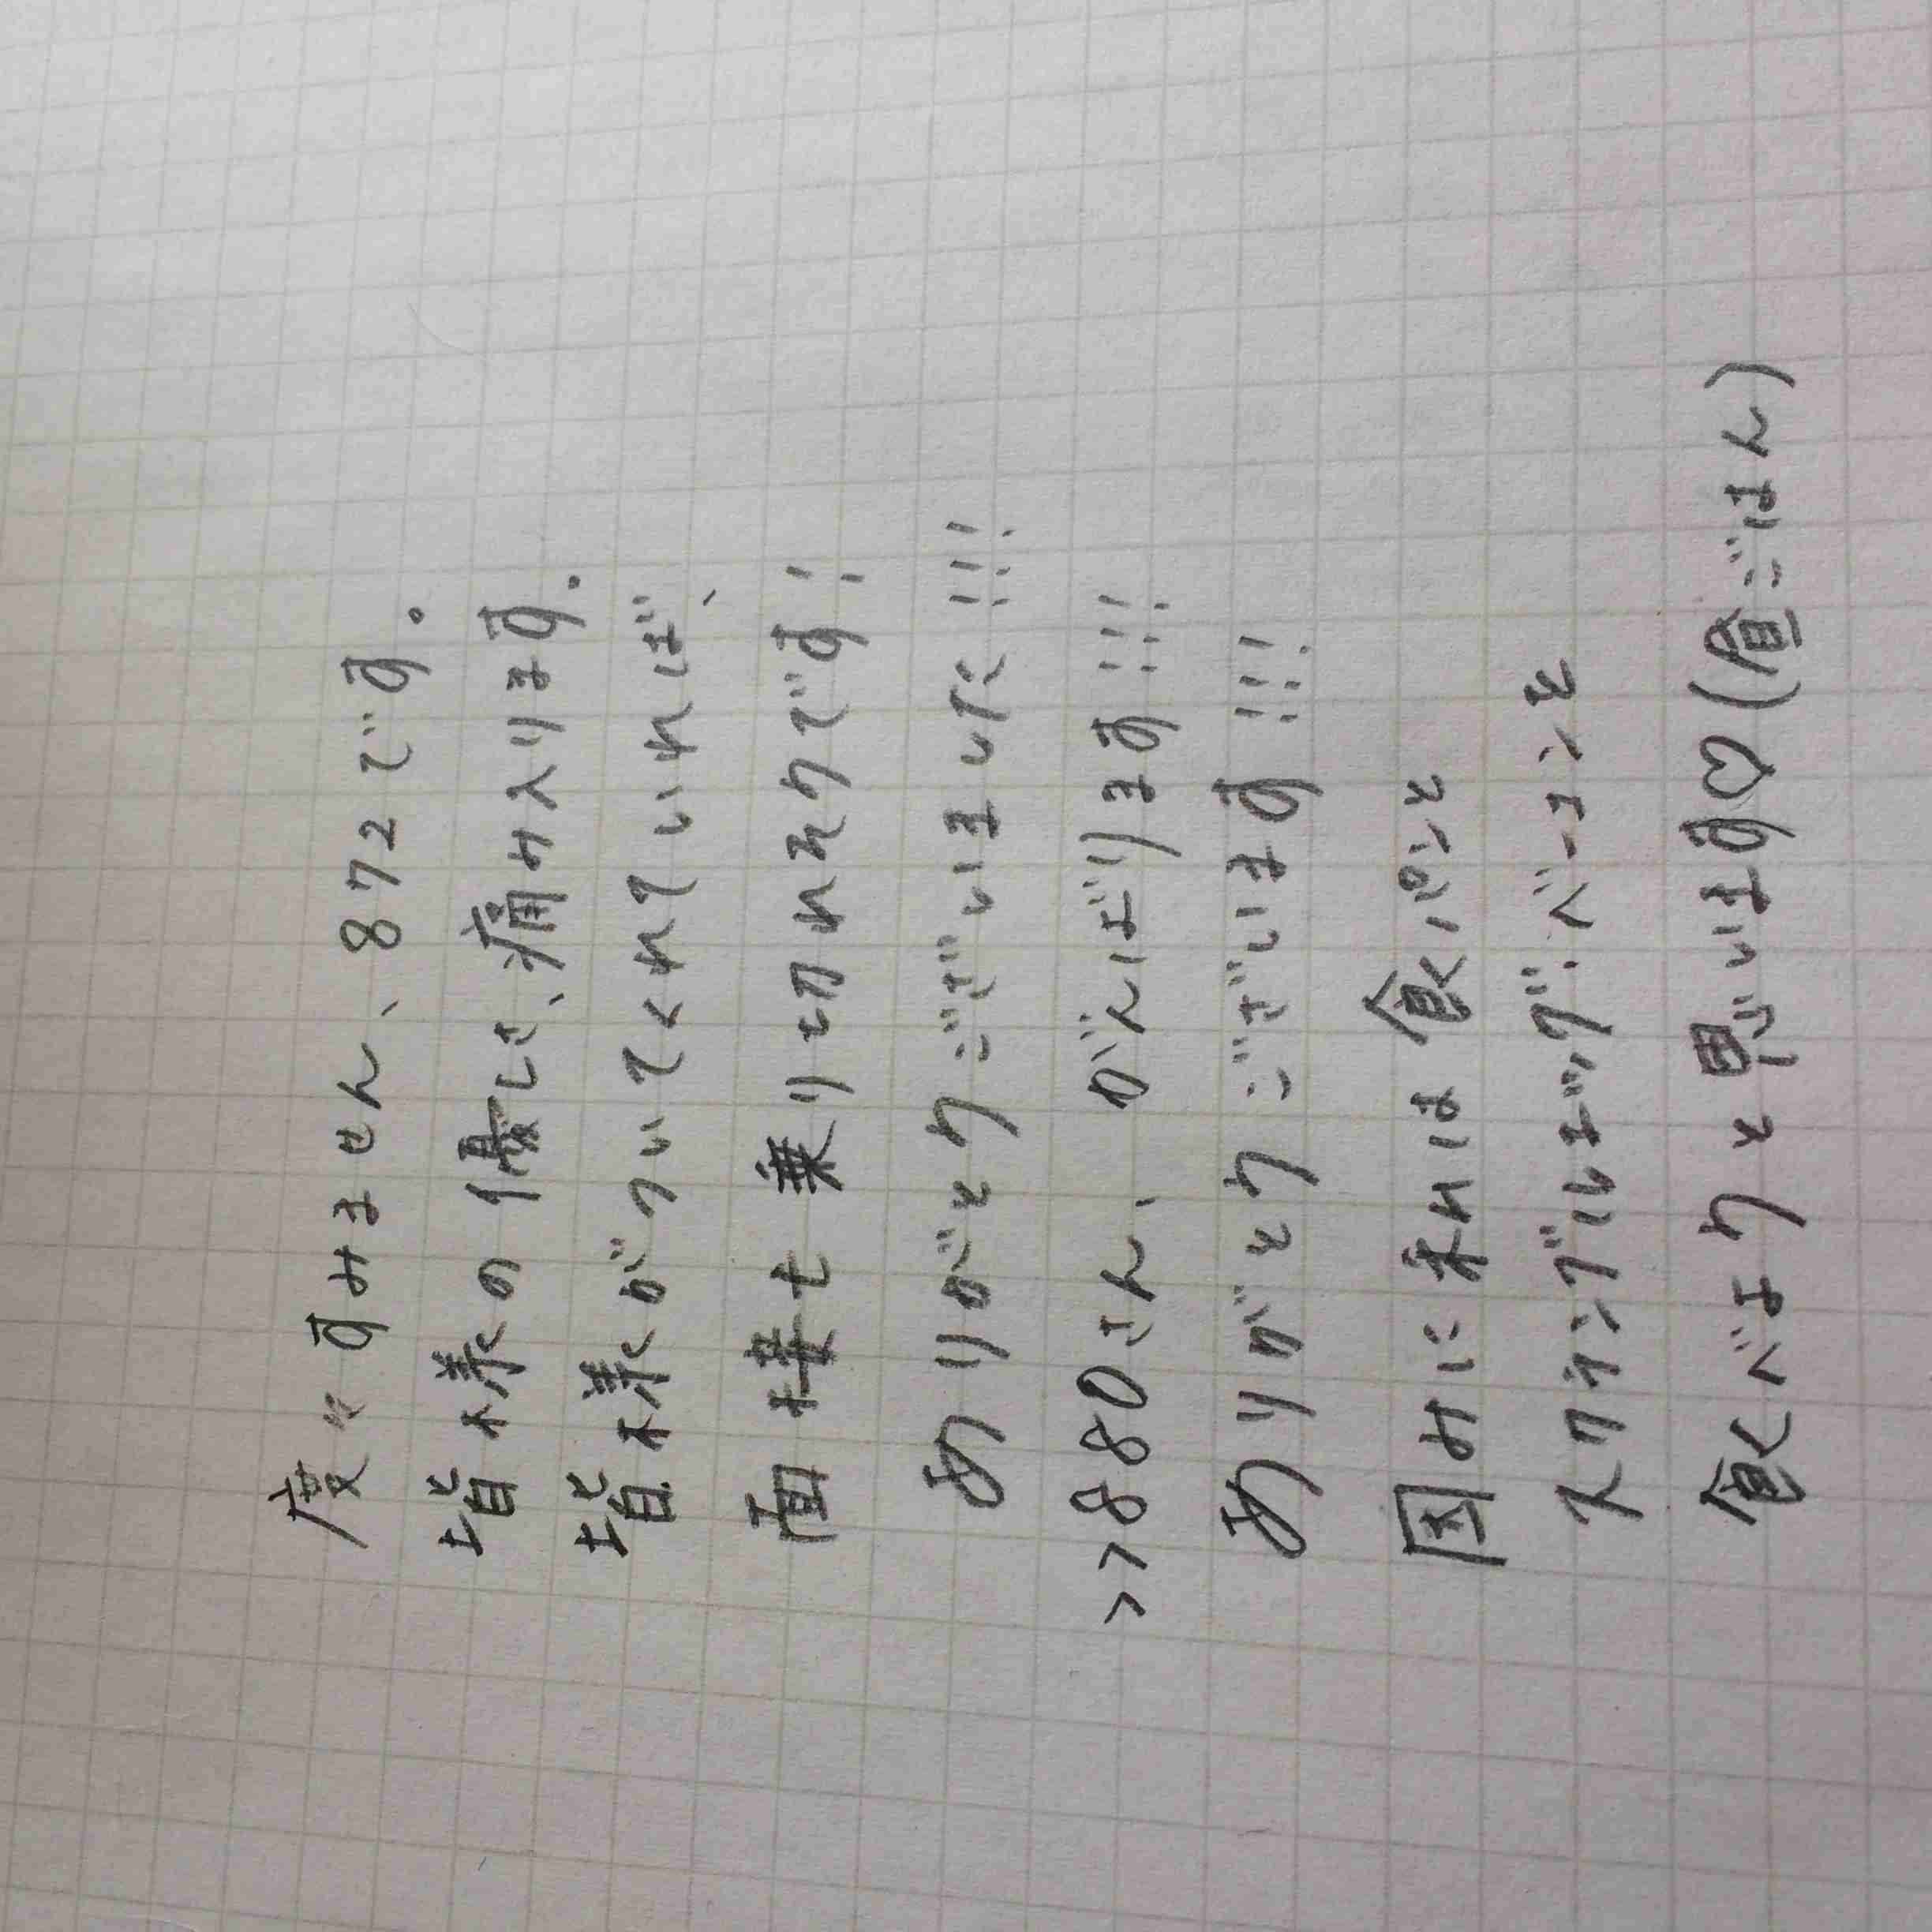 度々すみません、872です。
皆様の優しさ、痛み入ります.
皆様がついてくれていれば、
面接も乗り切れそうです!
ありがとうございました!!!
>>880さん、がんばります!!!
ありがとうございます!!!
因みに私は食パンと
スクランブルエッグ.ベーコンを
食べようと思います♡(昼ごはん)